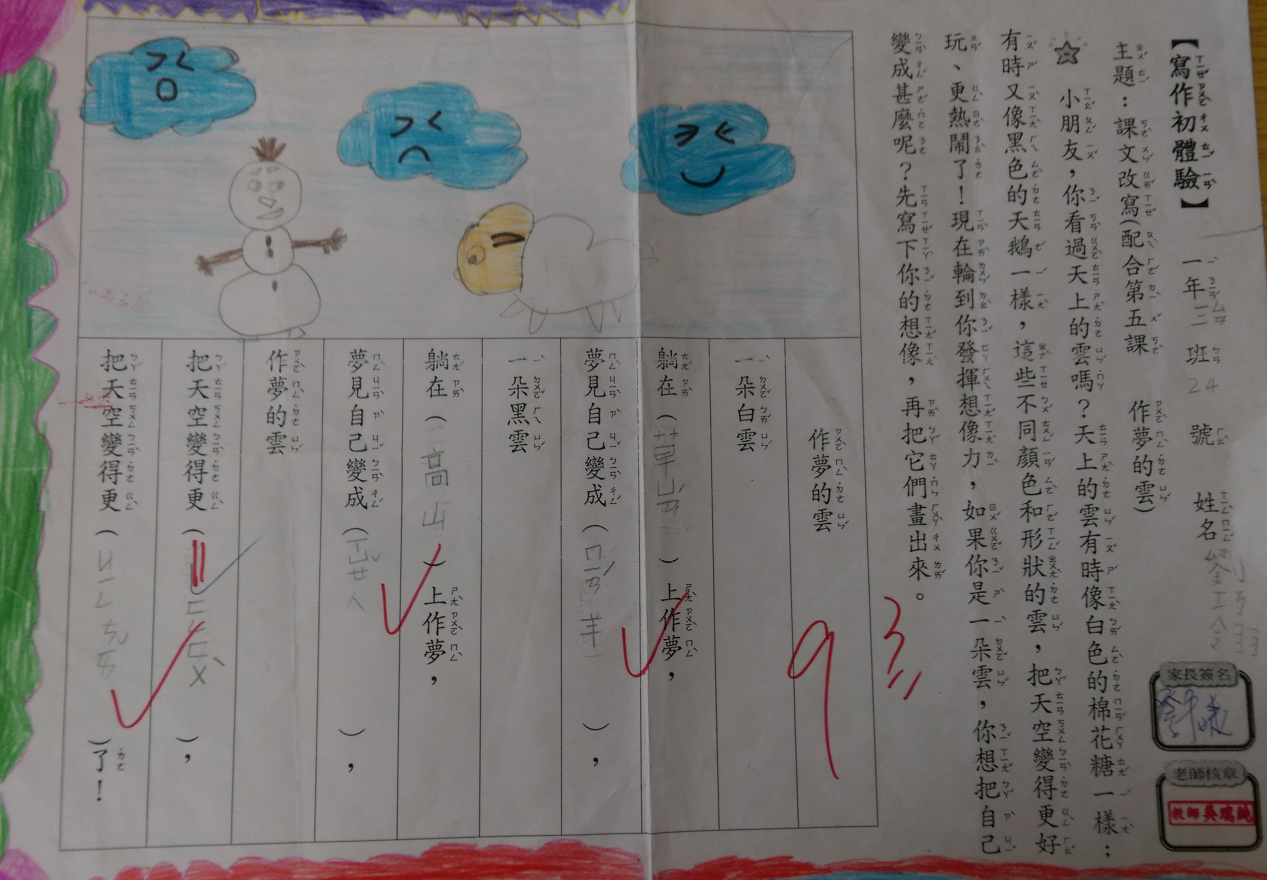 【寫作初體驗】
一年三班 24 號 姓名
主題：課文改寫(配合第五課 作夢的雲)
☆ 小朋友，你看過天上的雲嗎？天上的雲有時像白色的棉花糖一樣；
有時又像黑色的天鵝一樣，這些不同顏色和形狀的雲，把天空變得更好
玩、更熱鬧了！現在輪到你發揮想像力，如果你是一朵雲，你想把自己
變成甚麼呢？先寫下你的想像，再把它們畫出來。
93
作夢的雲
一朵白雲
躺在（草ㄩㄢˊ）上作夢，
夢見自己變成（ㄇㄧㄢˊ羊），
一朵黑雲
躺在（高山）上作夢，
夢見自己變成（ㄒㄩㄝˇ人），
作夢的雲
把天空變得更（），
把天空變得更（）了！
家長簽名
老師核章